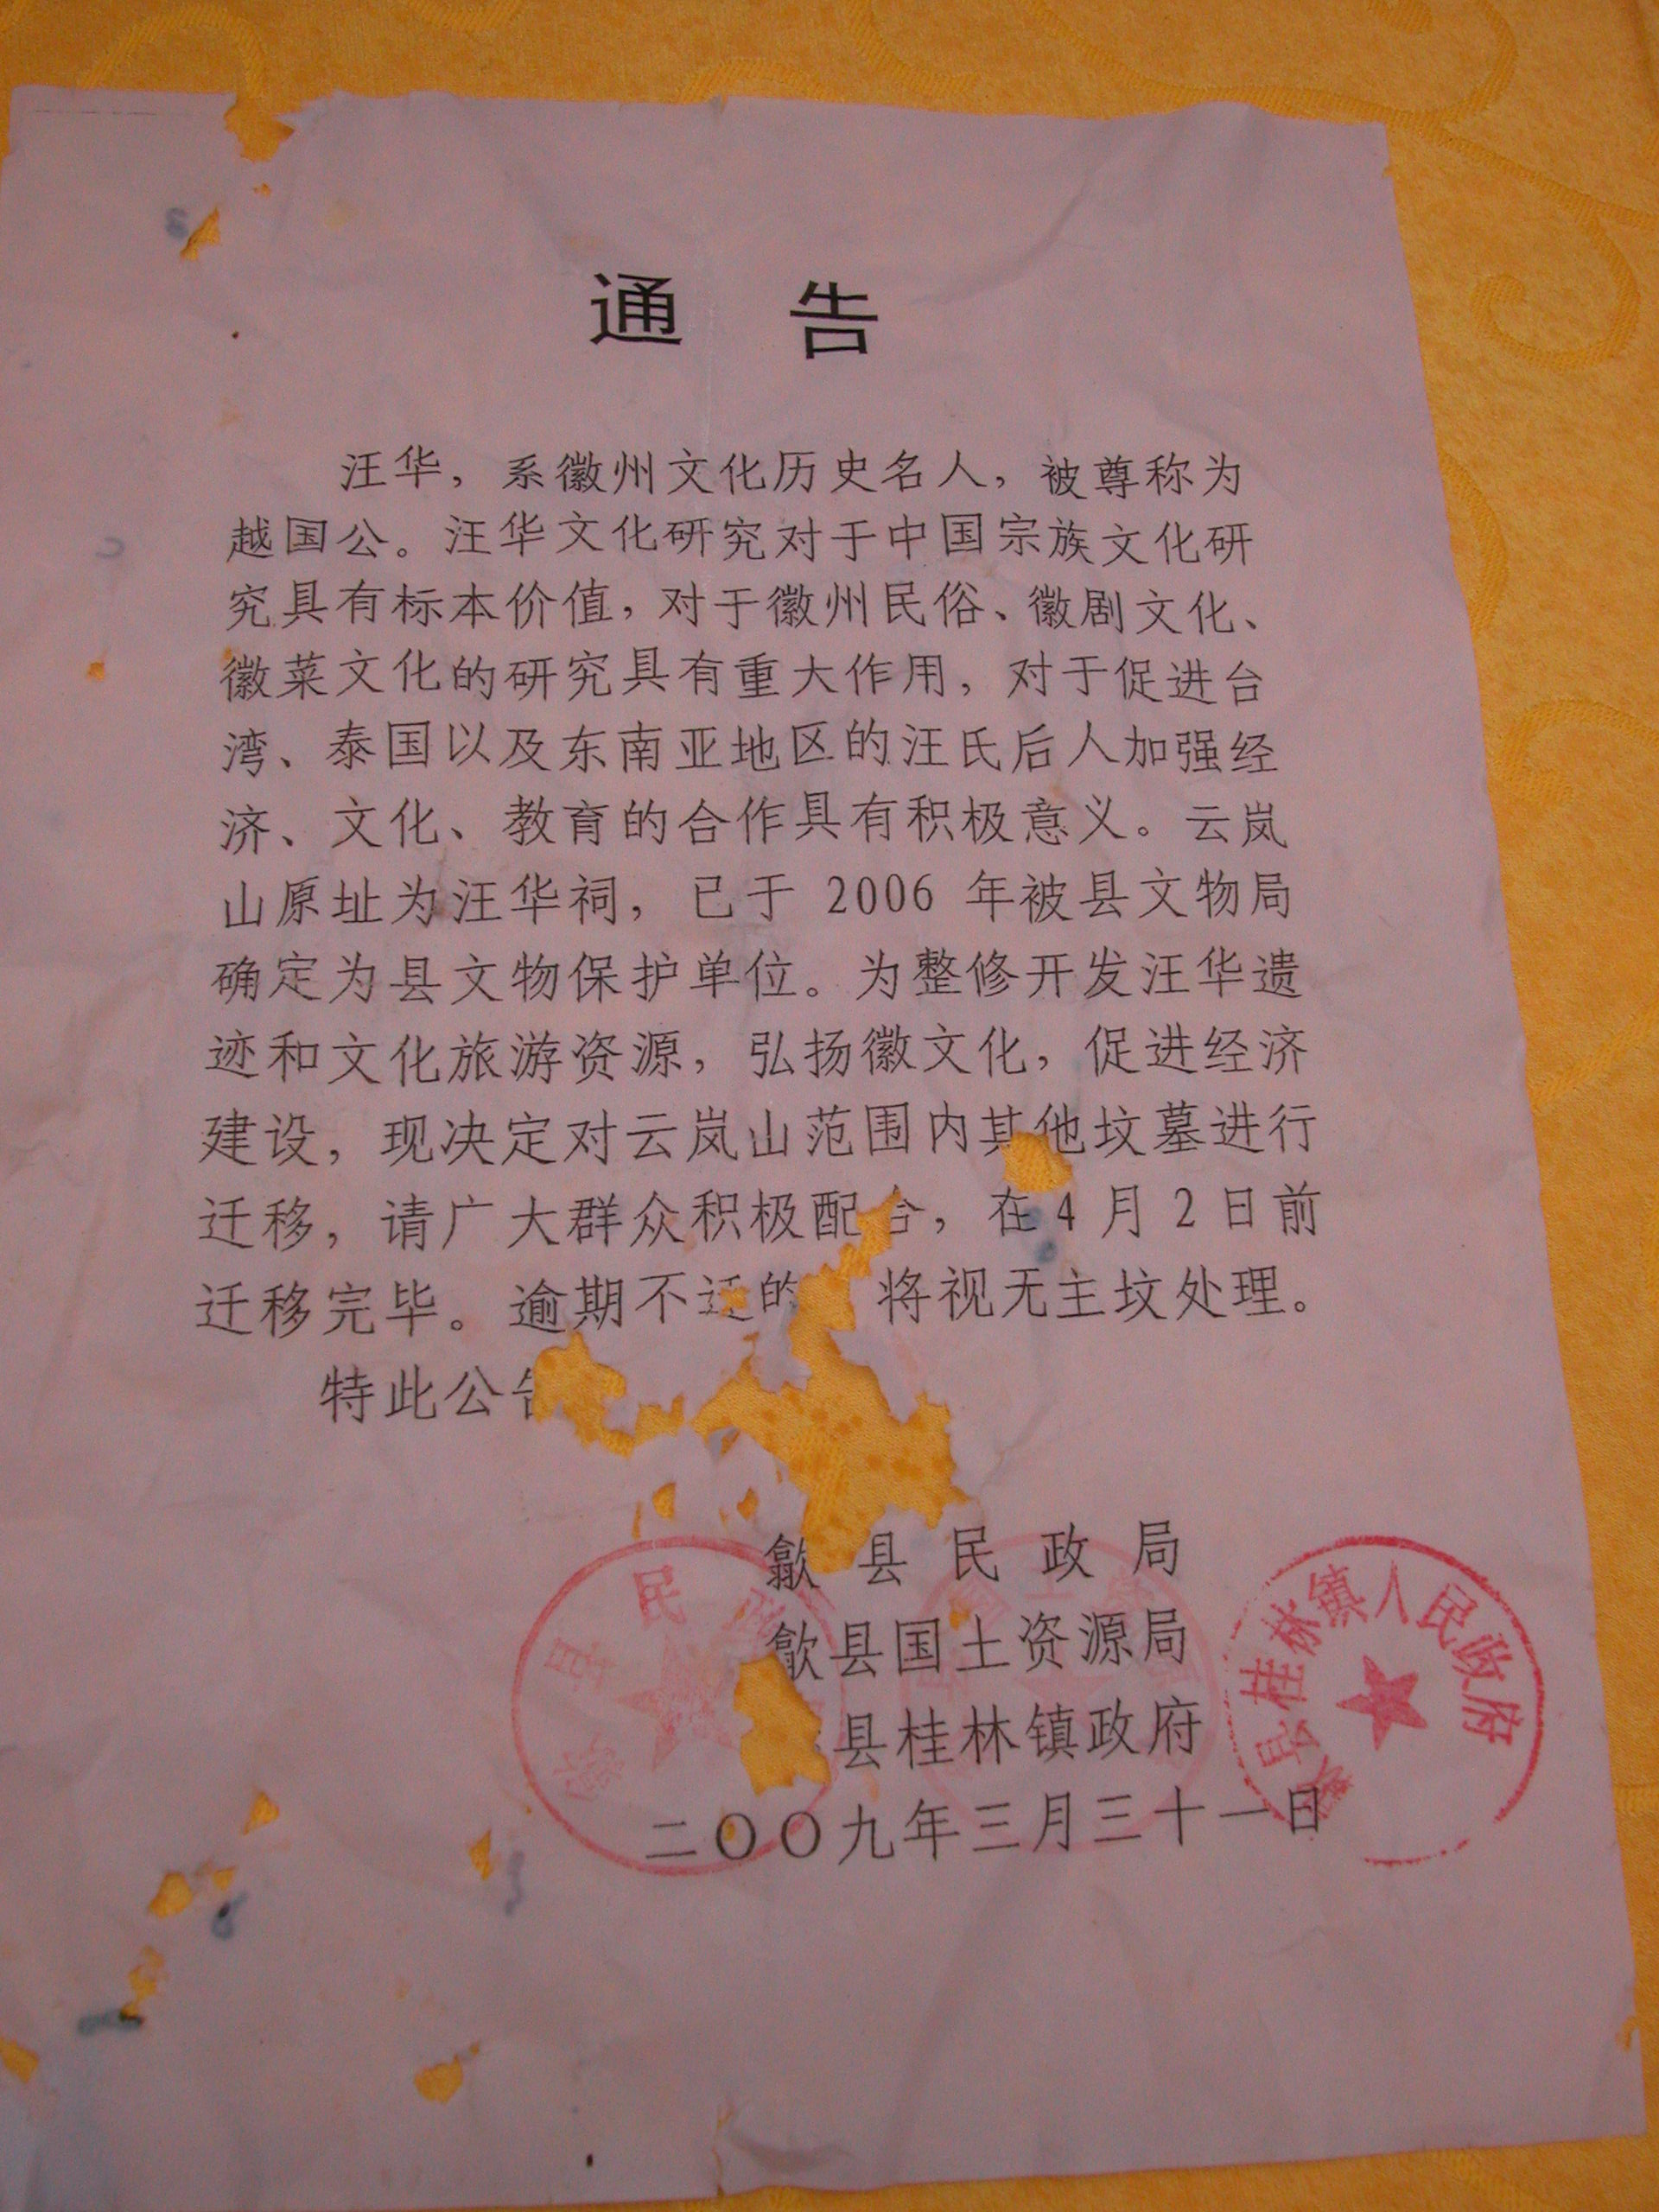 通 告
汪华，系徽州文化历史名人，被尊称为
越国公。汪华文化研究对于中国宗族文化研
究具有标本价值，对于徽州民俗、徽剧文化、
徽菜文化的研究具有重大作用，对于促进台
湾、泰国以及东南亚地区的汪氏后人加强经
济、文化、教育的合作具有积极意义。云岚
山原址为汪华祠，已于 2006 年被县文物局
确定为县文物保护单位。为整修开发汪华遗
迹和文化旅游资源，弘扬徽文化，促进经济
建设，现决定对云岚山范围内其他坟墓进行
迁移，请广大群众积极配合，在4月2日前
迁移完毕。逾期不迁的 将视无主坟处理。
特此公告
歙县民政局
歙县国土资源局
县桂林镇政府
二〇〇九年三月三十一日
县民政
县桂林镇人民政府